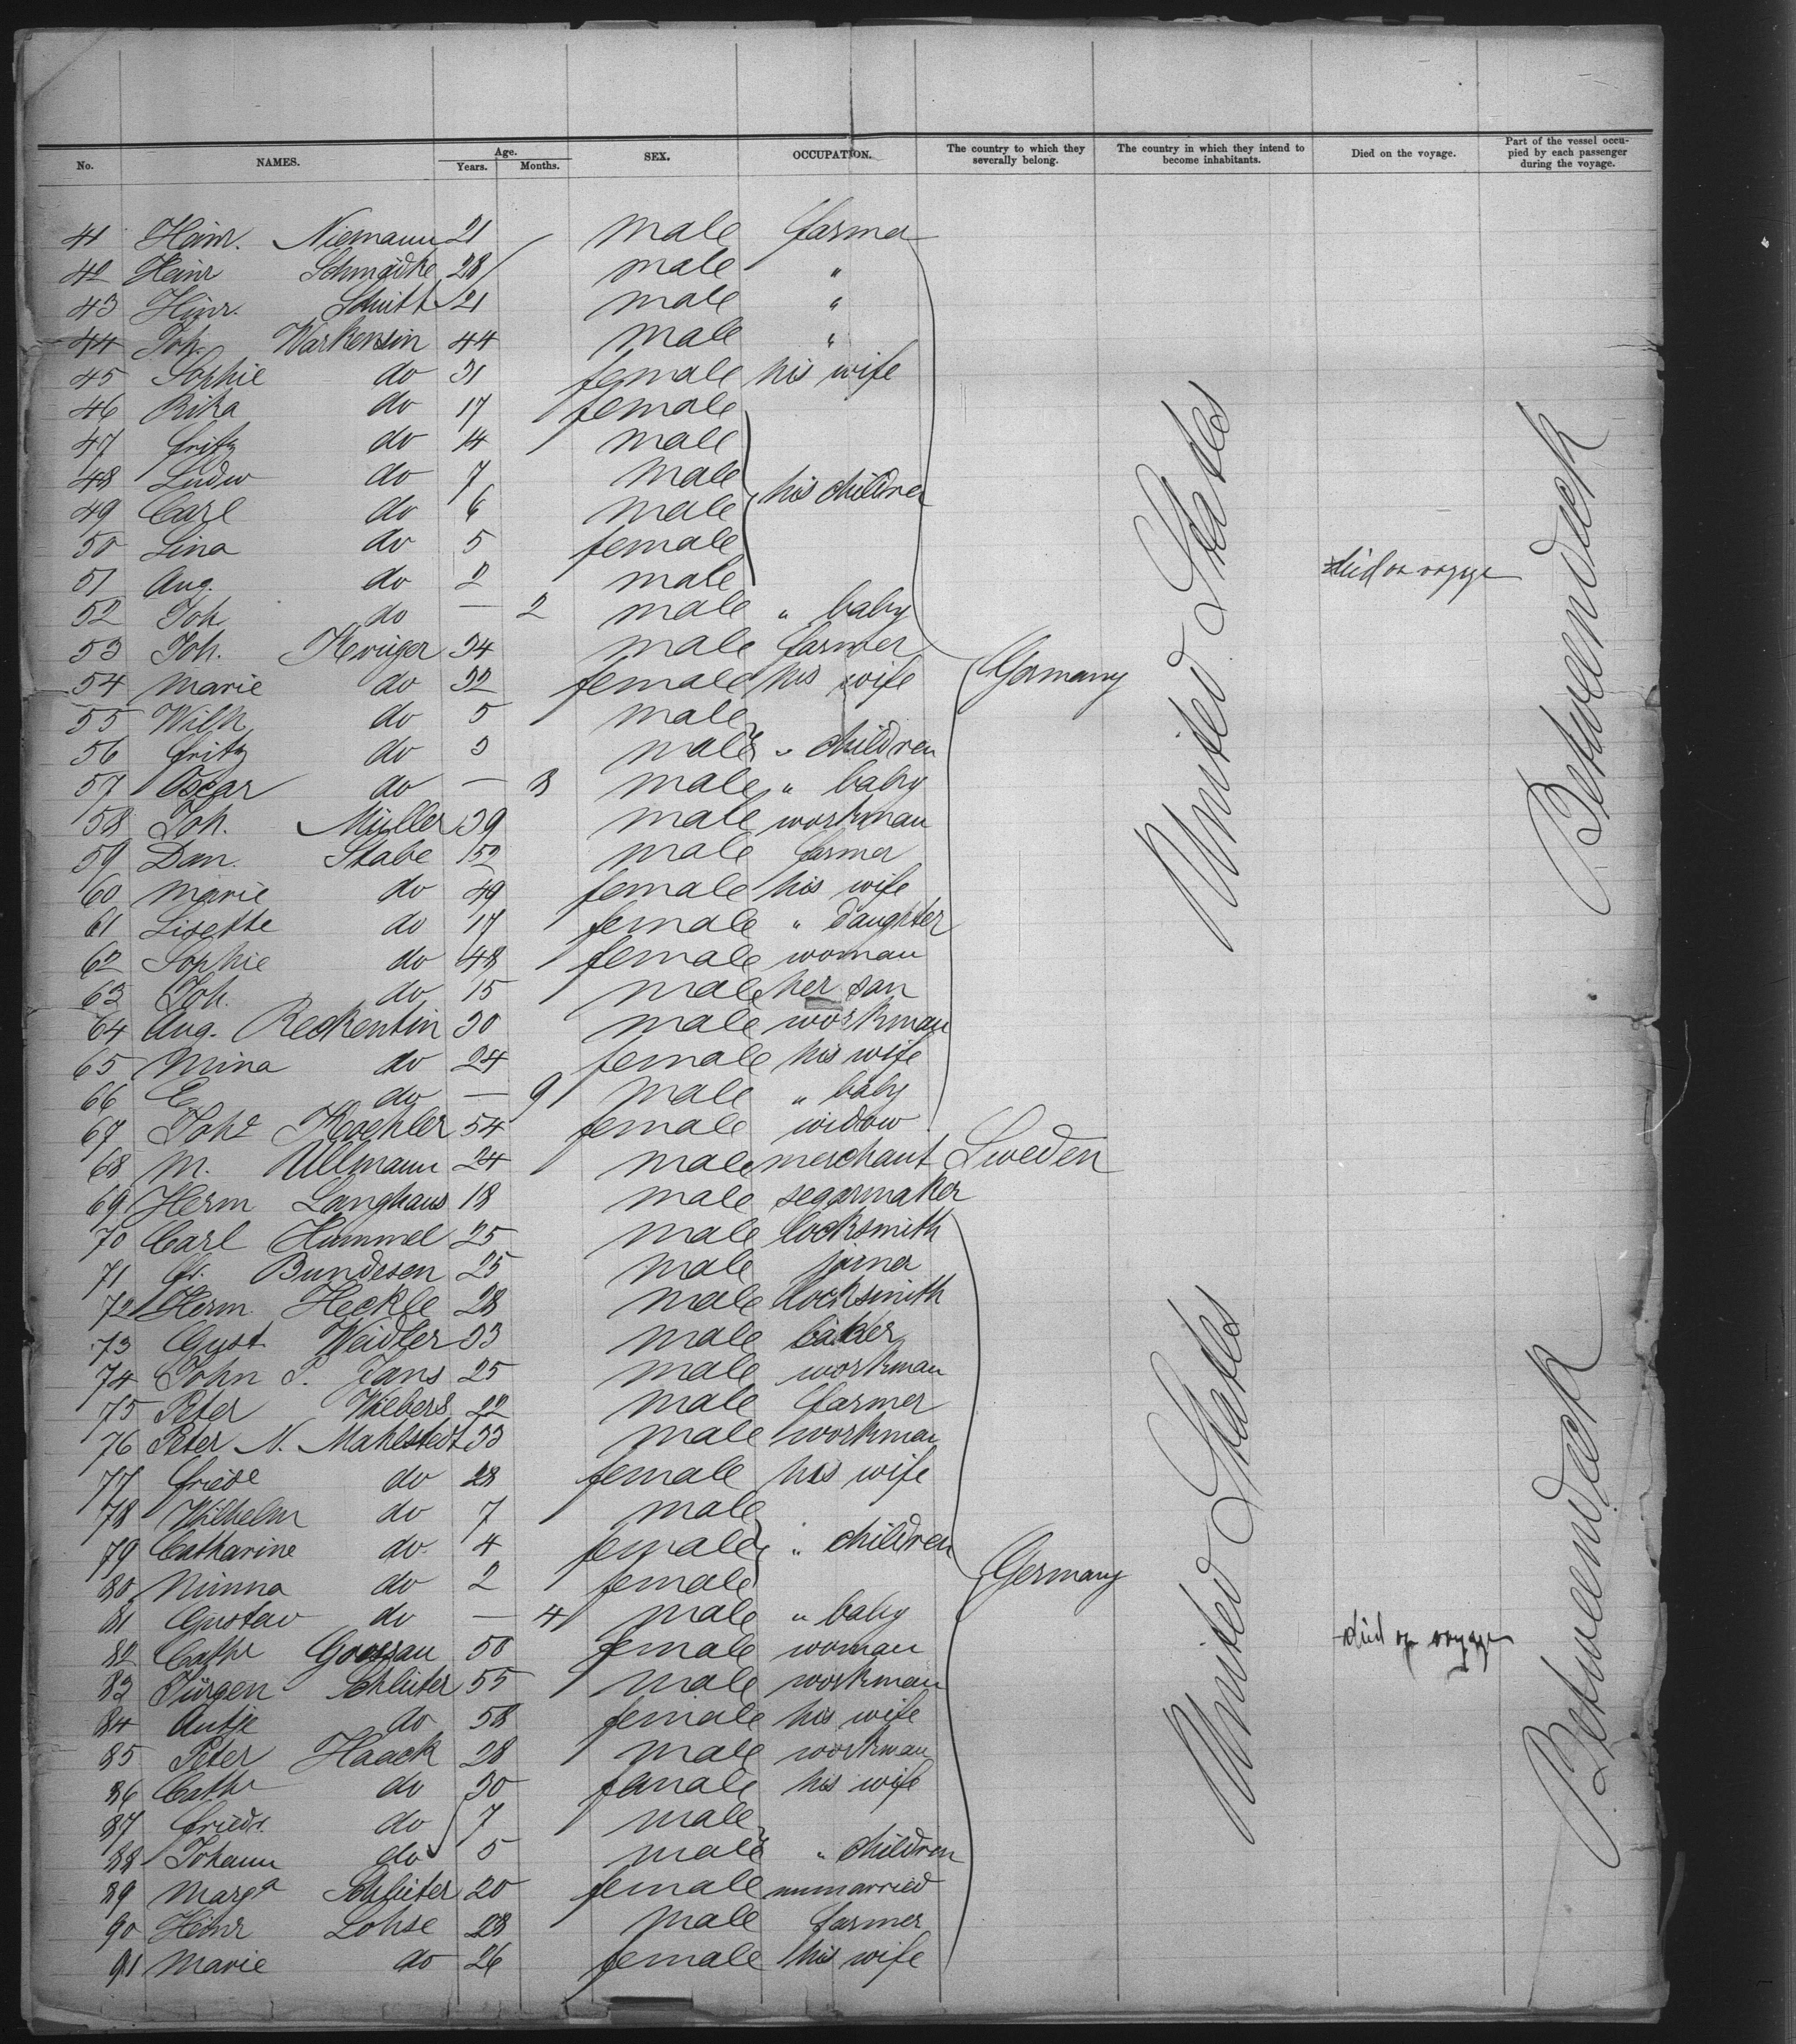 No. NAMES. Age. Years. Months. SEX. OCCUPATION. The country to which they severally belong. The country in which they intend to become inhabitants. Died on the voyage. Part of the vessel occupied by each passenger during the voyage.
41 Heinr. Niemann 21 male farmer
42 Heinr Schmädke 28 male "
43 Hinr. Schütt 21 male "
44 Joh. Warkensin 44 male "
45 Sophie do 31 female his wife
46 Rika do 17 female
47 Fritz do 14 male
48 Ludw do 7 male
49 Carl do 6 male his children
50 Lina do 5 female
51 Aug. do 2 male died on voyage
52 Joh do — 2 male " baby
53 Joh. Krüger 34 male farmer
54 Marie do 32 female his wife Germany United States Betweendeck
55 Wilh. do 5 male
56 Fritz do 3 male " children
57 Oscar do — 3 male " baby
58 Joh. Müller 39 male workman
59 Dan. Stabe 52 male farmer
60 Marie do 49 female his wife
61 Lisette do 17 female " daughter
62 Sophie do 48 female woman
63 Joh. do 15 male her son
64 Aug. Reckentin 30 male workman
65 Mina do 24 female his wife
66 E. do — 9 male " baby
67 Joh? Koehler 54 female widow
68 M. Ullmann 24 male merchant Sweden
69 Herm Langhans 18 male segarmaker
70 Carl Hummel 25 male locksmith
71 Fr. Bundesen 25 male joiner
72 Herm. Heckle 28 male locksmith
73 Gust Weidler 33 male baker
74 John P. Jans 25 male workman
75 Peter Wiebers 22 male farmer
76 Peter N. Mahlstedt 33 male workman
77 Friede do 28 female his wife
78 Wilhelm do 7 male
79 Catharine do 4 female " children
80 Minna do 2 female Germany United States Betweendeck
81 Gustav do — 4 male " baby
82 Cathr Goossau 50 female woman died on voyage
83 Jürgen Schlüter 55 male workman
84 Antje do 58 female his wife
85 Peter Haack 28 male workman
86 Cathr do 30 female his wife
87 Friedr. do 7 male
88 Johann do 5 male " children
89 Marga Schlüter 20 female unmarried
90 Heinr Lohse 28 male farmer
91 Marie do 26 female his wife